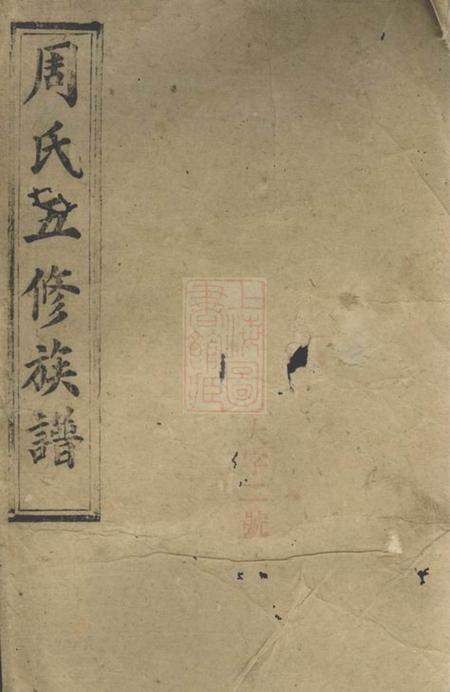 周氏五修族譜
上海圖書館藏
大字二號